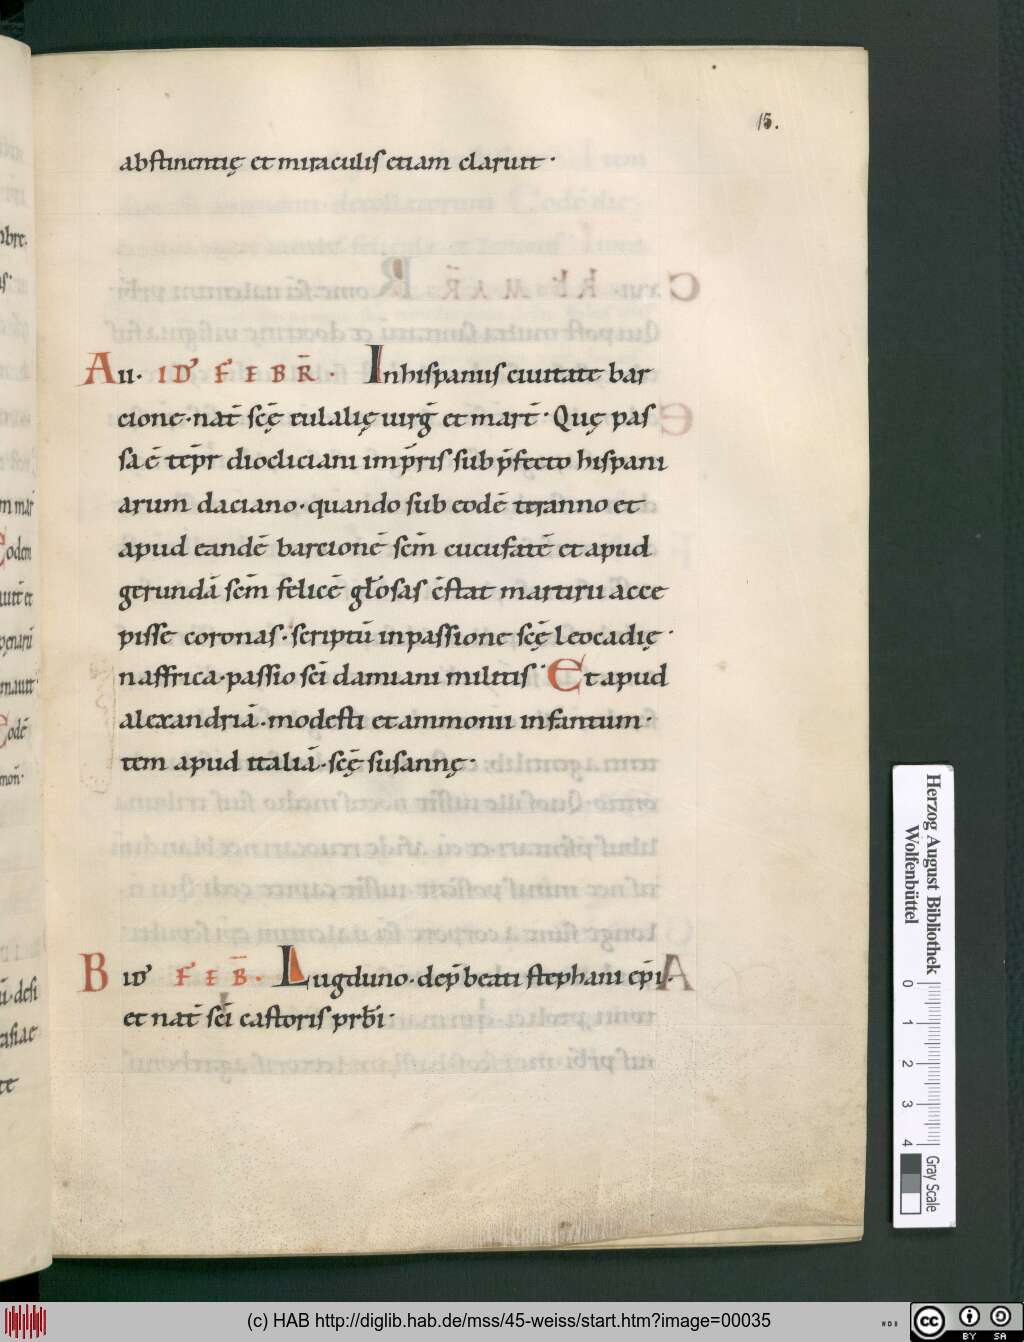 15.
abstinentię et miraculis etiam claruit ·
A II · ID' FEBR̄ · In hispaniis ciuitate bar
cione · nat̄ scę̄ eulalię uirḡ et mart̄ · Quę pas
sa ē tēpr diocliciani imp̄ris sub p̄fecto hispani
arum daciano · quando sub eodē teranno et
apud eandē barcionē scm̄ cucufatē et apud
gerundā scm̄ felicē gl̄osas c̄stat martirii acce
pisse coronas · scriptū in passione scę̄ leocadię ·
n affrica · passio sc̄i damiani militis · Et apud
alexandriā · modesti et ammonii infantum ·
tem apud italiā · scę̄ susannę ·
B ID' FEB̄ · Lugduno · dep̄ beati stephani ep̄i ·
et nat̄ sc̄i castoris prb̄i ·
Herzog August Bibliothek
Wolfenbüttel
0 1 2 3 4
Gray Scale
(c) HAB http://diglib.hab.de/mss/45-weiss/start.htm?image=00035
cc BY SA